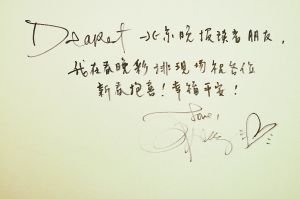 Dearest 北京晚报读者朋友,
我在春晚彩排现场祝各位
新春抱喜!幸福平安!
Love,